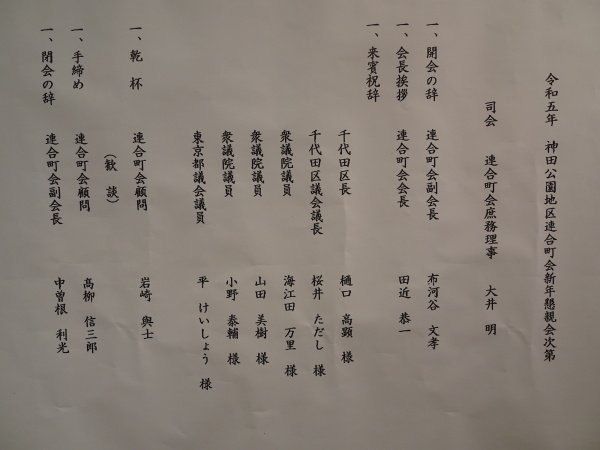 令和五年 神田公園地区連合町会新年懇親会次第
司会 連合町会庶務理事 大井 明
一、開会の辞 連合町会副会長 布河谷 文孝
一、会長挨拶 連合町会会長 田近 恭一
一、来賓祝辞
千代田区長 樋口 高顕 様
千代田区議会議長 桜井 ただし 様
衆議院議員 海江田 万里 様
衆議院議員 山田 美樹 様
衆議院議員 小野 泰輔 様
東京都議会議員 平 けいしょう 様
一、乾杯 連合町会顧問 岩崎 與士
（歓談）
一、手締め 連合町会顧問 高柳 信三郎
一、閉会の辞 連合町会副会長 中曽根 利光